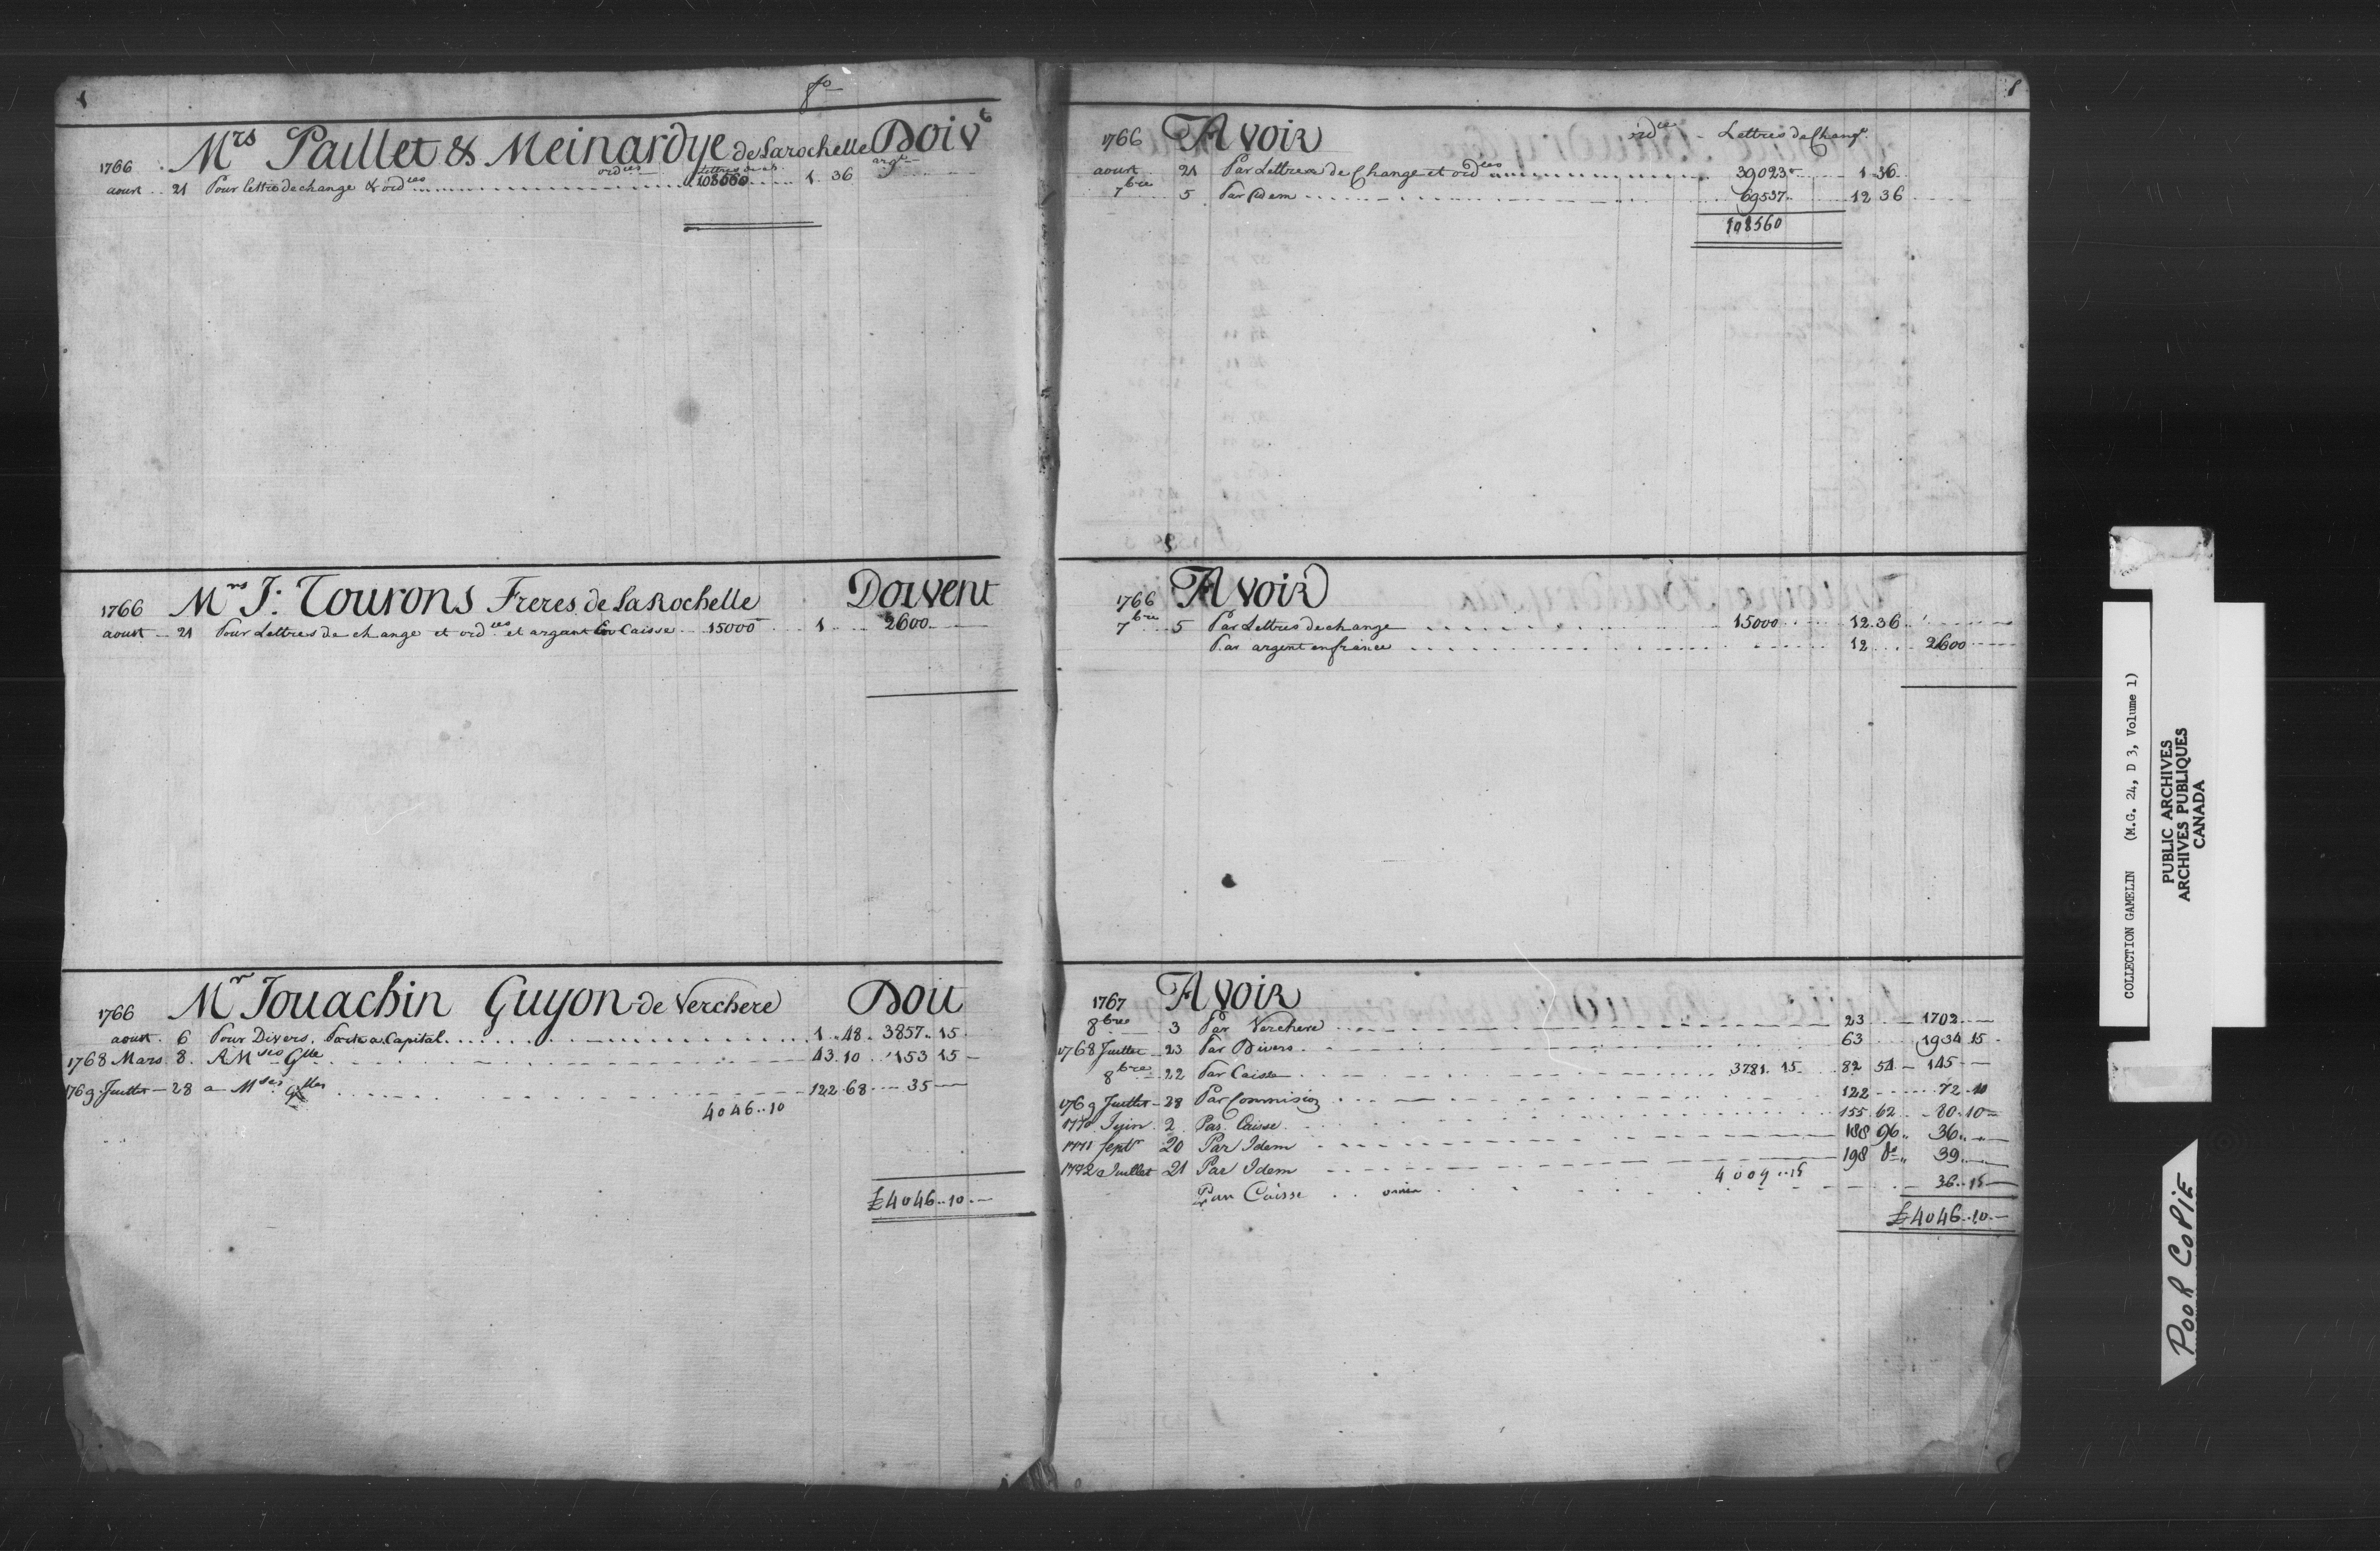 1
fo
Mrs Paillet & Meinardye de Larochelle Doivt
1766
ordces Lettres de ch. argt
aoust 21 Pour lettre de change & ordces 108560 1 36
Mrs J: Tourons Freres de LaRochelle Doivent
1766
aoust 21 Pour Lettres de change et ordces et argant En Caisse 15000 1 2600
Mr Jouachin Guyon de Verchere Doit
1766
aoust 6 Pour Divers Capital 1 48 3857 15
1768 Mars 8 A Mses Glle 43 10 153 15
1769 Juillet 28 a Mses 122 68 35
4046 10
£ 4046 10
1766 Avoir ordce Lettres de Change
aoust 21 Par Lettres de Change et ordces 39023 1 36
7bre 5 Par Idem 69537 12 36
108560
1766 Avoir
7bre 5 Par Lettres de change 15000 12 36
Par argent en france 12 2600
1767 Avoir
8bre 3 Par Verchere 23 1702
1768 Juillet 23 Par Divers 63 1934 15
8bre 22 Par Caisse 3781 15 82 54 145
1769 Juillet 28 Par Commision 122 72 10
1770 Juin 2 Par Caisse 155 62 80 10
1771 Sept 20 Par Idem 188 96 36
1772 Juillet 21 Par Idem 198 do 39
4009 15
Par Caisse 36 15
£ 4046 10
COLLECTION GAMELIN (M.G. 24, D 3, Volume 1)
PUBLIC ARCHIVES
ARCHIVES PUBLIQUES
CANADA
POOR COPIE